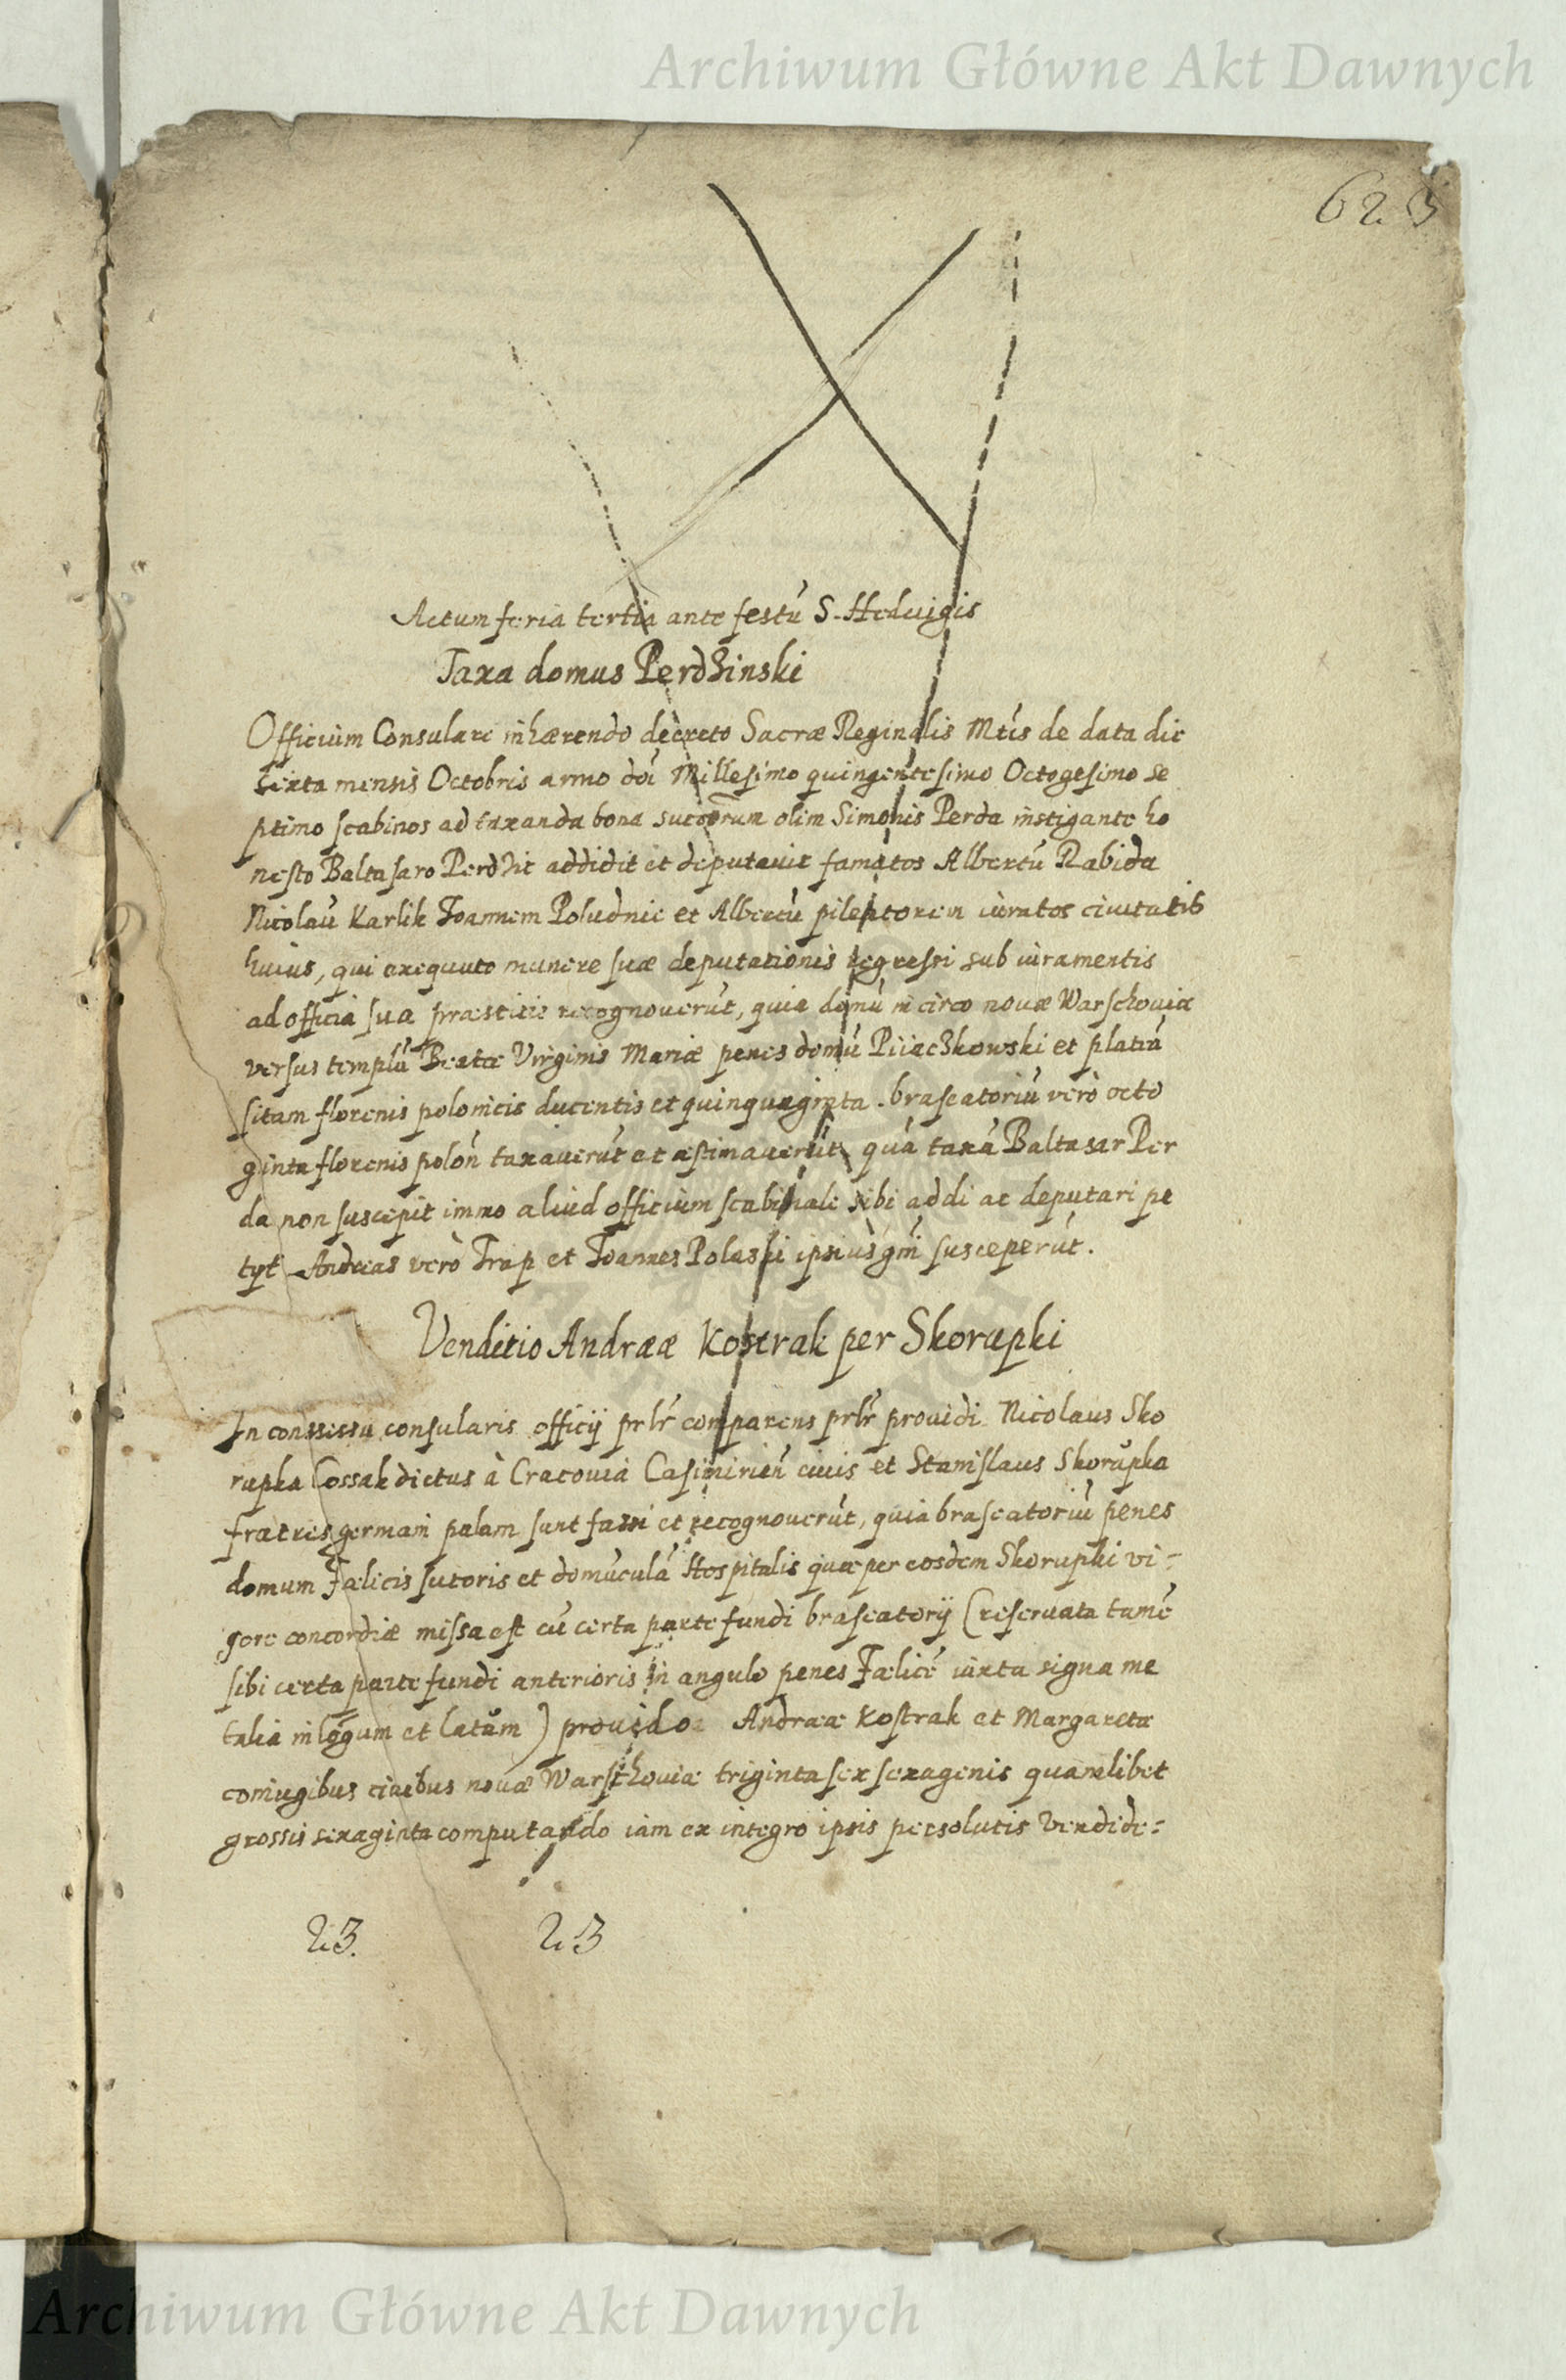 Archiwum Główne Akt Dawnych
623
Actum feria tertia ante festū S. Hedvigis
Taxa domus Perdzinski
Officium Consulare inhærendo decreto Sacræ Reginalis Mtis de data die
sexta mensis Octobris anno doi Millesimo quingentesimo Octogesimo se
ptimo scabinos ad taxanda bona olim Simonis Perda instigante ho
nesto Baltasaro addidit et deputavit famatos Albertū Rabida
Nicolaū Karlik Joannem Poludnie et Albertū pileatorem iuratos civitatis
huius, qui exequuto munere suæ deputationis regressi sub iuramentis
ad officia sua præstitis recognoverūt, quia domū in circo novæ Warschoviæ
versus templū Beatæ Virginis Mariæ penes domū et plateā
sitam florenis polonicis ducentis et quinquaginta. braseatoriū verò octo
ginta florenis polon̄ taxaverūt et æstimaverūt, quā taxā Baltasar Per
da non suscepit immo aliud officium scabinale sibi addi ac deputari pe
tyt Andreas verò Trap et Joannes Polaski ipsius suscepeerūt.
Venditio Andrææ Kostrak per Skorupki
In conssessu consularis officij prlr comparens prlr providi Nicolaus Sko
rupka Cossak dictus à Cracovia Casimirien̄ civis et Stanislaus Skorupka
fratres germani palam sunt fassi et recognoverūt, quia braseatoriū penes
domum Fælicis sutoris et domūculā Hospitalis quæ per eosdem Skorupki vi=
gore concordiæ missa est cū certa parte fundi braseatorij (reservata tamē
sibi certa parte fundi anterioris in angulo penes Fælicē iuxta signa me
talia in lōgum et latum) provido Andrææ Kostrak et Margaretæ
coniugibus civibus novæ Warschoviæ triginta sex sexagenis quamlibet
grossis sexaginta computando iam ex integro ipsis persolutis vendide=
23.
23
Archiwum Główne Akt Dawnych